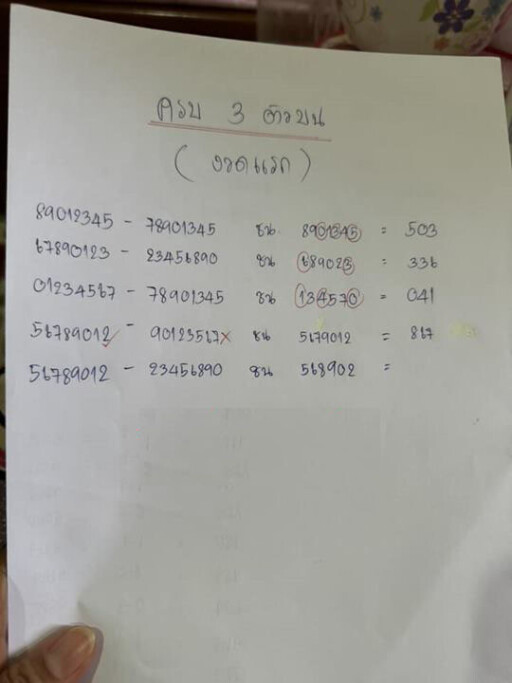 ครบ 3 ตัวบน
(งวดแรก)
89012345 - 78901345 ชน. 8901345 = 503
67890123 - 23456890 ชน 689023 = 336
01234567 - 78901345 ชน 134570 = 041
56789012 - 90123567 ชน 5679012 = 867
56789012 - 23456890 ชน 568902 =